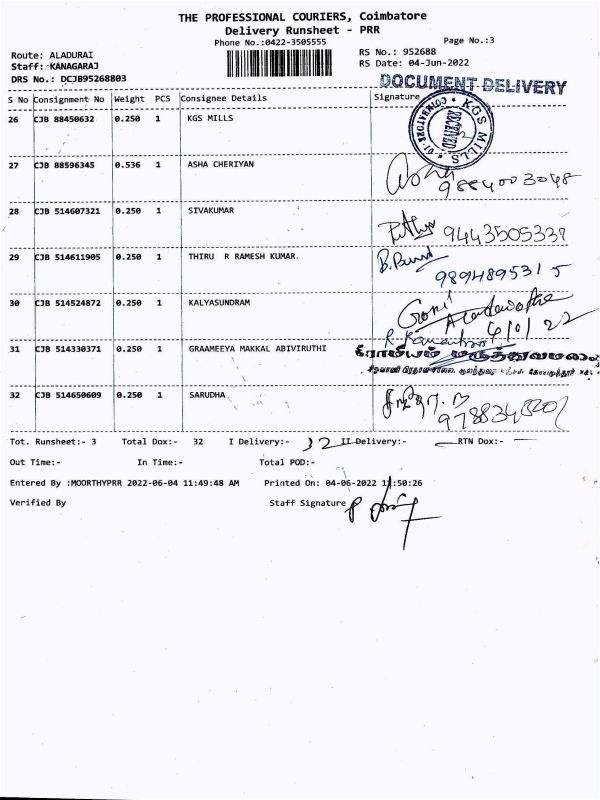 THE PROFESSIONAL COURIERS, Coimbatore
Delivery Runsheet - PRR
Phone No.:0422-3505555
Page No.:3
Route: ALADURAI
RS No.: 952688
Staff: KANAGARAJ
RS Date: 04-Jun-2022
DRS No.: DCJB95268803
DOCUMENT DELIVERY
S No Consignment No Weight PCS Consignee Details Signature
26 CJB 88450632 0.250 1 KGS MILLS
KGS MILLS COIMBATORE RECEIVED
27 CJB 88596345 0.536 1 ASHA CHERIYAN
Asha
9884003048
28 CJB 514607321 0.250 1 SIVAKUMAR
9443505339
29 CJB 514611905 0.250 1 THIRU R RAMESH KUMAR.
9894895315
30 CJB 514524872 0.250 1 KALYASUNDRAM
31 CJB 514330371 0.250 1 GRAAMEEYA MAKKAL ABIVIRUTHI
32 CJB 514650609 0.250 1 SARUDHA
Tot. Runsheet:- 3 Total Dox:- 32 I Delivery:- 32 II Delivery:- RTN Dox:-
Out Time:- In Time:- Total POD:-
Entered By :MOORTHYPRR 2022-06-04 11:49:48 AM Printed On: 04-06-2022 11:50:26
Verified By Staff Signature